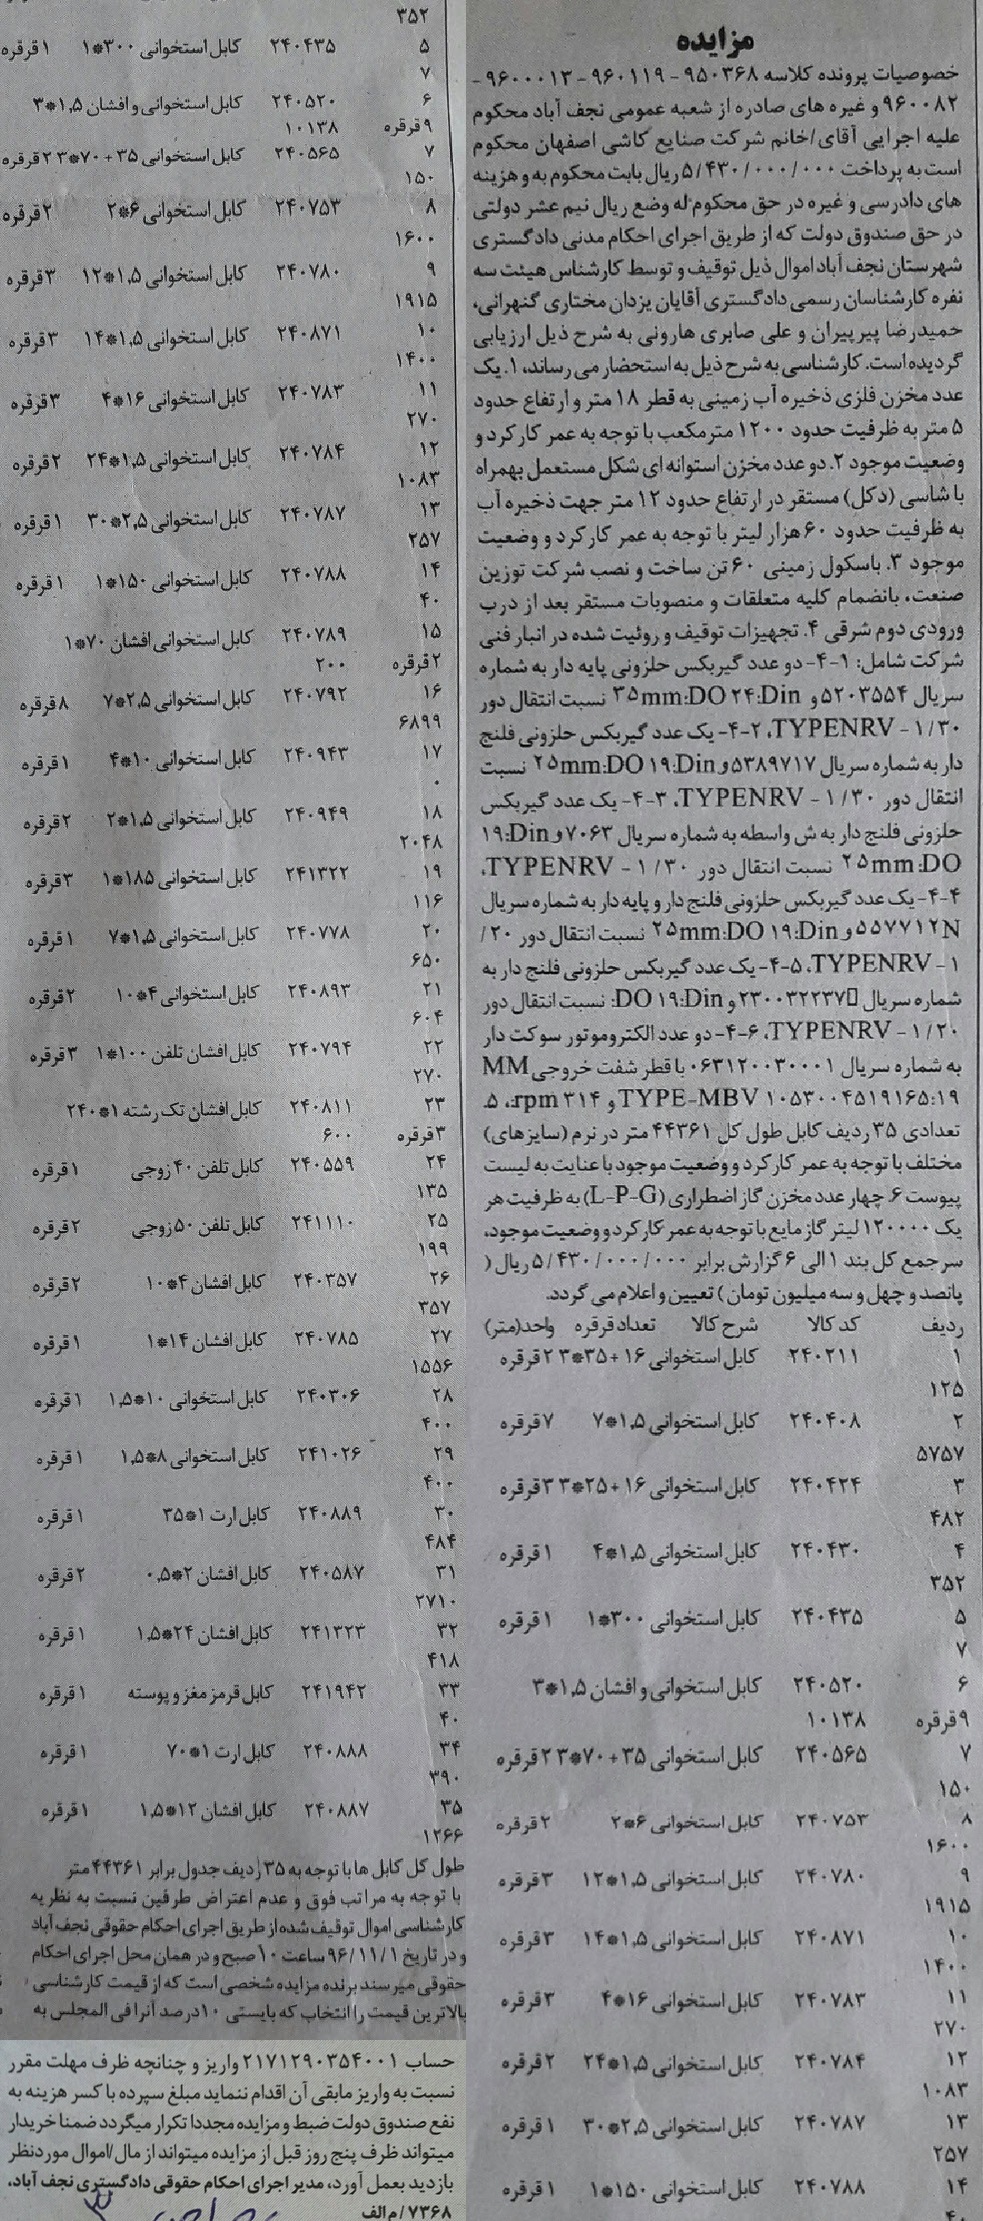 مزایده
خصوصیات پرونده کلاسه ۹۵۰۳۶۸ - ۹۶۰۱۱۹ - ۹۶۰۰۰۱۳ -
۹۶۰۰۸۲ و غیره های صادره از شعبه عمومی نجف آباد محکوم
علیه اجرایی آقای/خانم شرکت صنایع کاشی اصفهان محکوم
است به پرداخت ۵/۴۳۰/۰۰۰/۰۰۰ ریال بابت محکوم به و هزینه
های دادرسی و غیره در حق محکوم له وضع ریال نیم عشر دولتی
در حق صندوق دولت که از طریق اجرای احکام مدنی دادگستری
شهرستان نجف آباد اموال ذیل توقیف و توسط کارشناس هیئت سه
نفره کارشناسان رسمی دادگستری آقایان یزدان مختاری گنهرانی،
حمیدرضا پیرپیران و علی صابری هارونی به شرح ذیل ارزیابی
گردیده است. کارشناسی به شرح ذیل به استحضار می رساند، ۱. یک
عدد مخزن فلزی ذخیره آب زمینی به قطر ۱۸ متر و ارتفاع حدود
۵ متر به ظرفیت حدود ۱۲۰۰ مترمکعب با توجه به عمر کارکرد و
وضعیت موجود ۲. دو عدد مخزن استوانه ای شکل مستعمل بهمراه
با شاسی (دکل) مستقر در ارتفاع حدود ۱۲ متر جهت ذخیره آب
به ظرفیت حدود ۶۰ هزار لیتر با توجه به عمر کارکرد و وضعیت
موجود ۳. باسکول زمینی ۶۰ تن ساخت و نصب شرکت توزین
صنعت، بانضمام کلیه متعلقات و منصوبات مستقر بعد از درب
ورودی دوم شرقی ۴. تجهیزات توقیف و روئیت شده در انبار فنی
شرکت شامل: ۱-۴- دو عدد گیربکس حلزونی پایه دار به شماره
سریال ۵۲۰۳۵۵۴ و ۳۵mm:DO ۲۴:Din نسبت انتقال دور
۱/۳۰ - TYPENRV، ۲-۴- یک عدد گیربکس حلزونی فلنج
دار به شماره سریال ۵۳۸۹۷۱۷ و ۲۵mm:DO ۱۹:Din نسبت
انتقال دور ۱/۳۰ - TYPENRV، ۳-۴- یک عدد گیربکس
حلزونی فلنج دار به ش واسطه به شماره سریال ۷۰۶۳ و ۱۹:Din
۲۵mm:DO نسبت انتقال دور ۱/۳۰ - TYPENRV،
۴-۴- یک عدد گیربکس حلزونی فلنج دار و پایه دار به شماره سریال
۵۵۷۷۱۲N و ۲۵mm:DO ۱۹:Din نسبت انتقال دور ۲۰/
۱ - TYPENRV، ۵-۴- یک عدد گیربکس حلزونی فلنج دار به
شماره سریال ۲۳۰۰۳۲۲۳۷ و DO ۱۹:Din: نسبت انتقال دور
۱/۲۰ - TYPENRV، ۶-۴- دو عدد الکتروموتور سوکت دار
به شماره سریال ۰۶۳۱۲۰۰۳۰۰۰۱ با قطر شفت خروجی MM
۱۹:۱۰۵۳۰۰۴۵۱۹۱۶۵ TYPE-MBV و ۳۱۴ rpm:، ۵.
تعدادی ۳۵ ردیف کابل طول کل ۴۴۳۶۱ متر در نرم (سایزهای)
مختلف با توجه به عمر کارکرد و وضعیت موجود با عنایت به لیست
پیوست ۶. چهار عدد مخزن گاز اضطراری (L-P-G) به ظرفیت هر
یک ۱۲۰۰۰۰ لیتر گاز مایع با توجه به عمر کارکرد و وضعیت موجود،
سرجمع کل بند ۱ الی ۶ گزارش برابر ۵/۴۳۰/۰۰۰/۰۰۰ ریال (
پانصد و چهل و سه میلیون تومان) تعیین و اعلام می گردد.
ردیف کد کالا شرح کالا تعداد قرقره واحد(متر)
۱ ۲۴۰۲۱۱ کابل استخوانی ۱۶+۳۵*۳ ۲ قرقره
۱۲۵
۲ ۲۴۰۴۰۸ کابل استخوانی ۱,۵*۷ ۷ قرقره
۵۷۵۷
۳ ۲۴۰۴۲۴ کابل استخوانی ۱۶+۲۵*۳ ۳ قرقره
۴۸۲
۴ ۲۴۰۴۳۰ کابل استخوانی ۱,۵*۴ ۱ قرقره
۳۵۲
۵ ۲۴۰۴۳۵ کابل استخوانی ۳۰۰*۱ ۱ قرقره
۷
۶ ۲۴۰۵۲۰ کابل استخوانی و افشان ۱,۵*۳
۹ قرقره ۱۰۱۳۸
۷ ۲۴۰۵۶۵ کابل استخوانی ۳۵+۷۰*۳ ۲ قرقره
۱۵۰
۸ ۲۴۰۷۵۳ کابل استخوانی ۶*۲ ۲ قرقره
۱۶۰۰
۹ ۲۴۰۷۸۰ کابل استخوانی ۱,۵*۱۲ ۳ قرقره
۱۹۱۵
۱۰ ۲۴۰۸۷۱ کابل استخوانی ۱,۵*۱۴ ۳ قرقره
۱۴۰۰
۱۱ ۲۴۰۷۸۳ کابل استخوانی ۱۶*۴ ۳ قرقره
۲۷۰
۱۲ ۲۴۰۷۸۴ کابل استخوانی ۱,۵*۲۴ ۲ قرقره
۱۰۸۳
۱۳ ۲۴۰۷۸۷ کابل استخوانی ۲,۵*۳۰ ۱ قرقره
۲۵۷
۱۴ ۲۴۰۷۸۸ کابل استخوانی ۱۵۰*۱ ۱ قرقره
۴۰
۳۵۲
۵ ۲۴۰۴۳۵ کابل استخوانی ۳۰۰*۱ ۱ قرقره
۷
۶ ۲۴۰۵۲۰ کابل استخوانی و افشان ۱,۵*۳
۹ قرقره ۱۰۱۳۸
۷ ۲۴۰۵۶۵ کابل استخوانی ۳۵+۷۰*۳ ۲ قرقره
۱۵۰
۸ ۲۴۰۷۵۳ کابل استخوانی ۶*۲ ۲ قرقره
۱۶۰۰
۹ ۲۴۰۷۸۰ کابل استخوانی ۱,۵*۱۲ ۳ قرقره
۱۹۱۵
۱۰ ۲۴۰۸۷۱ کابل استخوانی ۱,۵*۱۴ ۳ قرقره
۱۴۰۰
۱۱ ۲۴۰۷۸۳ کابل استخوانی ۱۶*۴ ۳ قرقره
۲۷۰
۱۲ ۲۴۰۷۸۴ کابل استخوانی ۱,۵*۲۴ ۲ قرقره
۱۰۸۳
۱۳ ۲۴۰۷۸۷ کابل استخوانی ۲,۵*۳۰ ۱ قرقره
۲۵۷
۱۴ ۲۴۰۷۸۸ کابل استخوانی ۱۵۰*۱ ۱ قرقره
۴۰
۱۵ ۲۴۰۷۸۹ کابل استخوانی افشان ۷۰*۱
۲ قرقره ۲۰۰
۱۶ ۲۴۰۷۹۲ کابل استخوانی ۲,۵*۷ ۸ قرقره
۶۸۹۹
۱۷ ۲۴۰۹۴۳ کابل استخوانی ۱۰*۴ ۱ قرقره
۰
۱۸ ۲۴۰۹۴۹ کابل استخوانی ۱,۵*۲ ۲ قرقره
۲۰۴۸
۱۹ ۲۴۱۳۲۲ کابل استخوانی ۱۸۵*۱ ۳ قرقره
۱۱۶
۲۰ ۲۴۰۷۷۸ کابل استخوانی ۱,۵*۷ ۱ قرقره
۶۵۰
۲۱ ۲۴۰۸۹۳ کابل استخوانی ۴*۱۰ ۲ قرقره
۶۰۴
۲۲ ۲۴۰۷۹۴ کابل افشان تلفن ۱۰۰*۱ ۳ قرقره
۲۷۰
۲۳ ۲۴۰۸۱۱ کابل افشان تک رشته ۱*۲۴۰
۳ قرقره ۶۰۰
۲۴ ۲۴۰۵۵۹ کابل تلفن ۴۰ زوجی ۱ قرقره
۱۳۵
۲۵ ۲۴۱۱۱۰ کابل تلفن ۵۰ زوجی ۲ قرقره
۱۹۹
۲۶ ۲۴۰۳۵۷ کابل افشان ۴*۱۰ ۲ قرقره
۳۵۷
۲۷ ۲۴۰۷۸۵ کابل افشان ۱۴*۱ ۱ قرقره
۱۵۵۶
۲۸ ۲۴۰۳۰۶ کابل استخوانی ۱۰*۱,۵ ۱ قرقره
۴۰۰
۲۹ ۲۴۱۰۲۶ کابل استخوانی ۸*۱,۵ ۱ قرقره
۴۰۰
۳۰ ۲۴۰۸۸۹ کابل ارت ۱*۳۵ ۱ قرقره
۴۸۴
۳۱ ۲۴۰۵۸۷ کابل افشان ۲*۰,۵ ۲ قرقره
۲۷۱۰
۳۲ ۲۴۱۳۲۳ کابل افشان ۲۴*۱,۵ ۱ قرقره
۴۱۸
۳۳ ۲۴۱۹۴۲ کابل قرمز مغز و پوسته ۱ قرقره
۴۰
۳۴ ۲۴۰۸۸۸ کابل ارت ۱*۷۰ ۱ قرقره
۳۹۰
۳۵ ۲۴۰۸۸۷ کابل افشان ۱۲*۱,۵ ۱ قرقره
۱۲۶۶
طول کل کابل ها با توجه به ۳۵ ردیف جدول برابر ۴۴۳۶۱ متر
با توجه به مراتب فوق و عدم اعتراض طرفین نسبت به نظریه
کارشناسی اموال توقیف شده از طریق اجرای احکام حقوقی نجف آباد
و در تاریخ ۹۶/۱۱/۱ ساعت ۱۰ صبح و در همان محل اجرای احکام
حقوقی میرسند برنده مزایده شخصی است که از قیمت کارشناسی
بالاترین قیمت را انتخاب که بایستی ۱۰ درصد آنرا فی المجلس به
حساب ۲۱۷۱۲۹۰۳۵۴۰۰۱ واریز و چنانچه ظرف مهلت مقرر
نسبت به واریز مابقی آن اقدام ننماید مبلغ سپرده با کسر هزینه به
نفع صندوق دولت ضبط و مزایده مجددا تکرار میگردد ضمنا خریدار
میتواند ظرف پنج روز قبل از مزایده میتواند از مال/اموال موردنظر
بازدید بعمل آورد، مدیر اجرای احکام حقوقی دادگستری نجف آباد،
۷۳۶۸/م الف